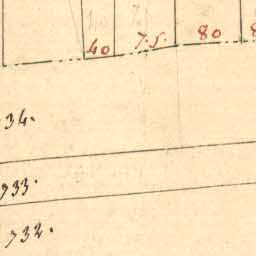 40 75. 80
34.
733.
732.